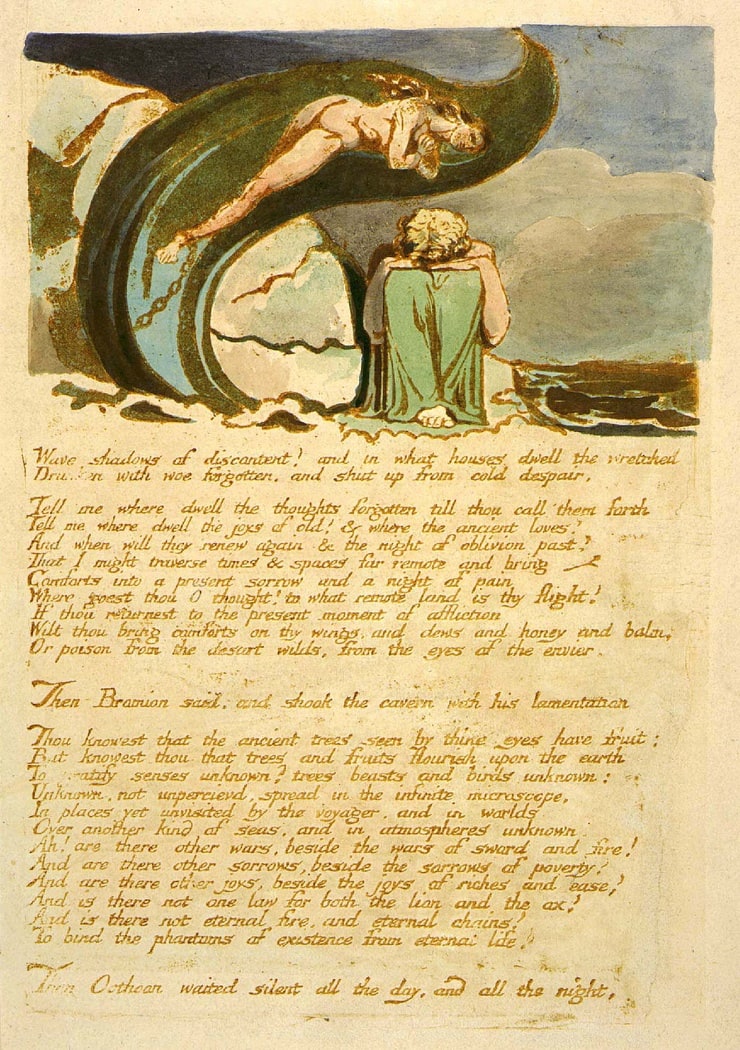 Wave shadows of discontent! and in what houses dwell the wretched
with woe forgotten, and shut up from cold despair,
Tell me where dwell the thoughts forgotten till thou call them forth
Tell me where dwell the joys of old! & where the ancient loves?
And when will they renew again & the night of oblivion past?
That I might traverse times & spaces far remote and bring
Comforts into a present sorrow and a night of pain
Where goest thou O thought! to what remote land is thy flight!
If thou returnest to the present moment of affliction
Wilt thou bring comforts on thy wings and dews and honey and balm,
Or poison from the desart wilds, from the eyes of the envier.
Then Bromion said, and shook the cavern with his lamentation
Thou knowest that the ancient trees seen by thine eyes have fruit;
But knowest thou that trees and fruits flourish upon the earth
To senses unknown? trees beasts and birds unknown:
Unknown, not unpercievd, spread in the infinite microscope,
In places yet unvisited by the voyager, and in worlds
Over another kind of seas, and in atmospheres unknown
Ah! are there other wars, beside the wars of sword and fire!
And are there other sorrows, beside the sorrows of poverty?
And are there other joys, beside the joys of riches and ease?
And is there not one law for both the lion and the ox?
And is there not eternal fire, and eternal chains?
To bind the phantoms of existence from eternal life?
Then Oothoon waited silent all the day, and all the night,